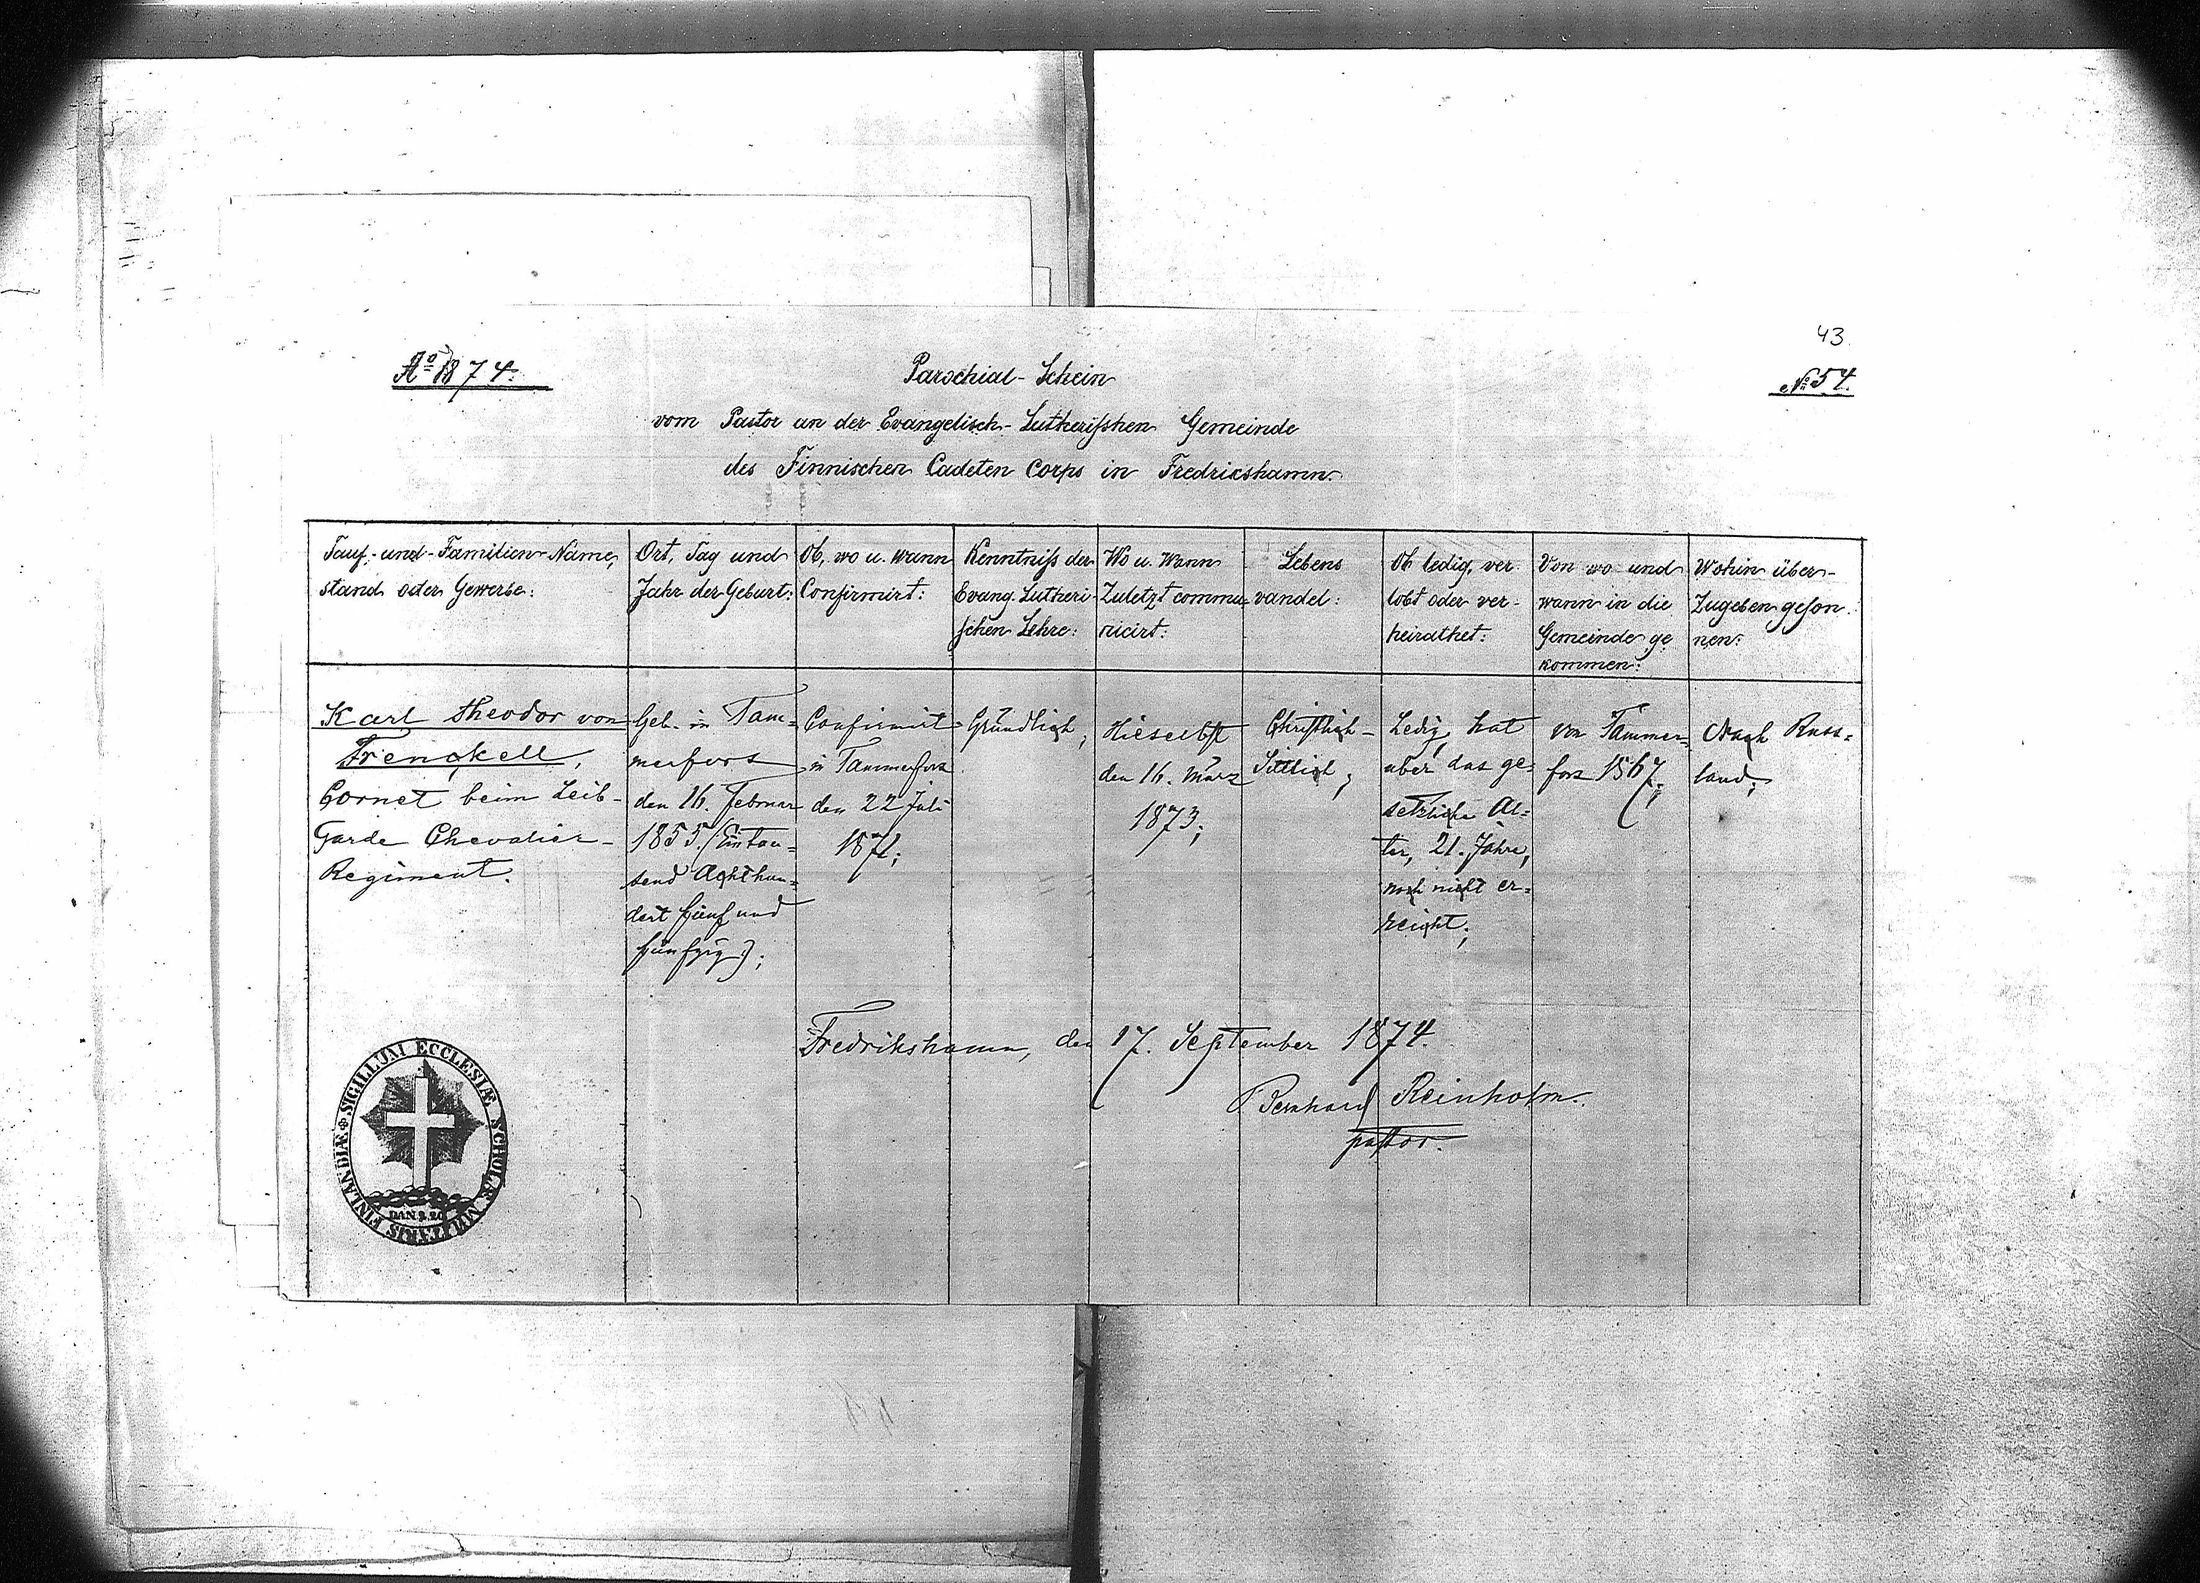 43.
Aº 1874.
Nº 54.
Parochial-Schein
vom Pastor an der Evangelisch-Lutherischen Gemeinde
des Finnischen Cadeten Corps in Fredrikshamn.
Tauf- und-Familien-Name,
stand oder Gewerbe:
Ort, Tag und
Jahr der Geburt:
Ob, wo u. wann
Confirmirt:
Kenntniſs der
Evang. Lutheri-
schen Lehre:
Wo u. wann
Zuletzt commu-
nicirt:
Lebens
wandel:
Ob ledig, ver-
lobt oder ver-
heirathet:
Von wo und
wann in die
Gemeinde ge
kommen:
Wohin über-
Zugehen geson-
nen:
Karl Theodor von
Frenckell,
Cornet beim Leib-
Garde Chevalier-
Regiment.
Geb. in Tam=
merfors
den 16. Februar
1855. (Eintau=
send Achthun=
dert fünf und
fünfzig);
Confirmirt
in Tammerfors
den 22 Juli
1871;
Gründlich;
Hieselbst
den 16. März
1873;
Christlich-
Sittlich;
Ledig, hat
aber das ge=
setzliche Al=
ter, 21. Jahre,
noch nicht er=
reicht;
von Tammer=
fors 1867;
Nach Russ=
land;
Fredrikshamn, den 17. September 1874.
Bernhard Reinholm.
pastor.
SIGILLUM ECCLESIÆ SCHOLÆ MILITARIS FINLANDIÆ
DAN 9. 20